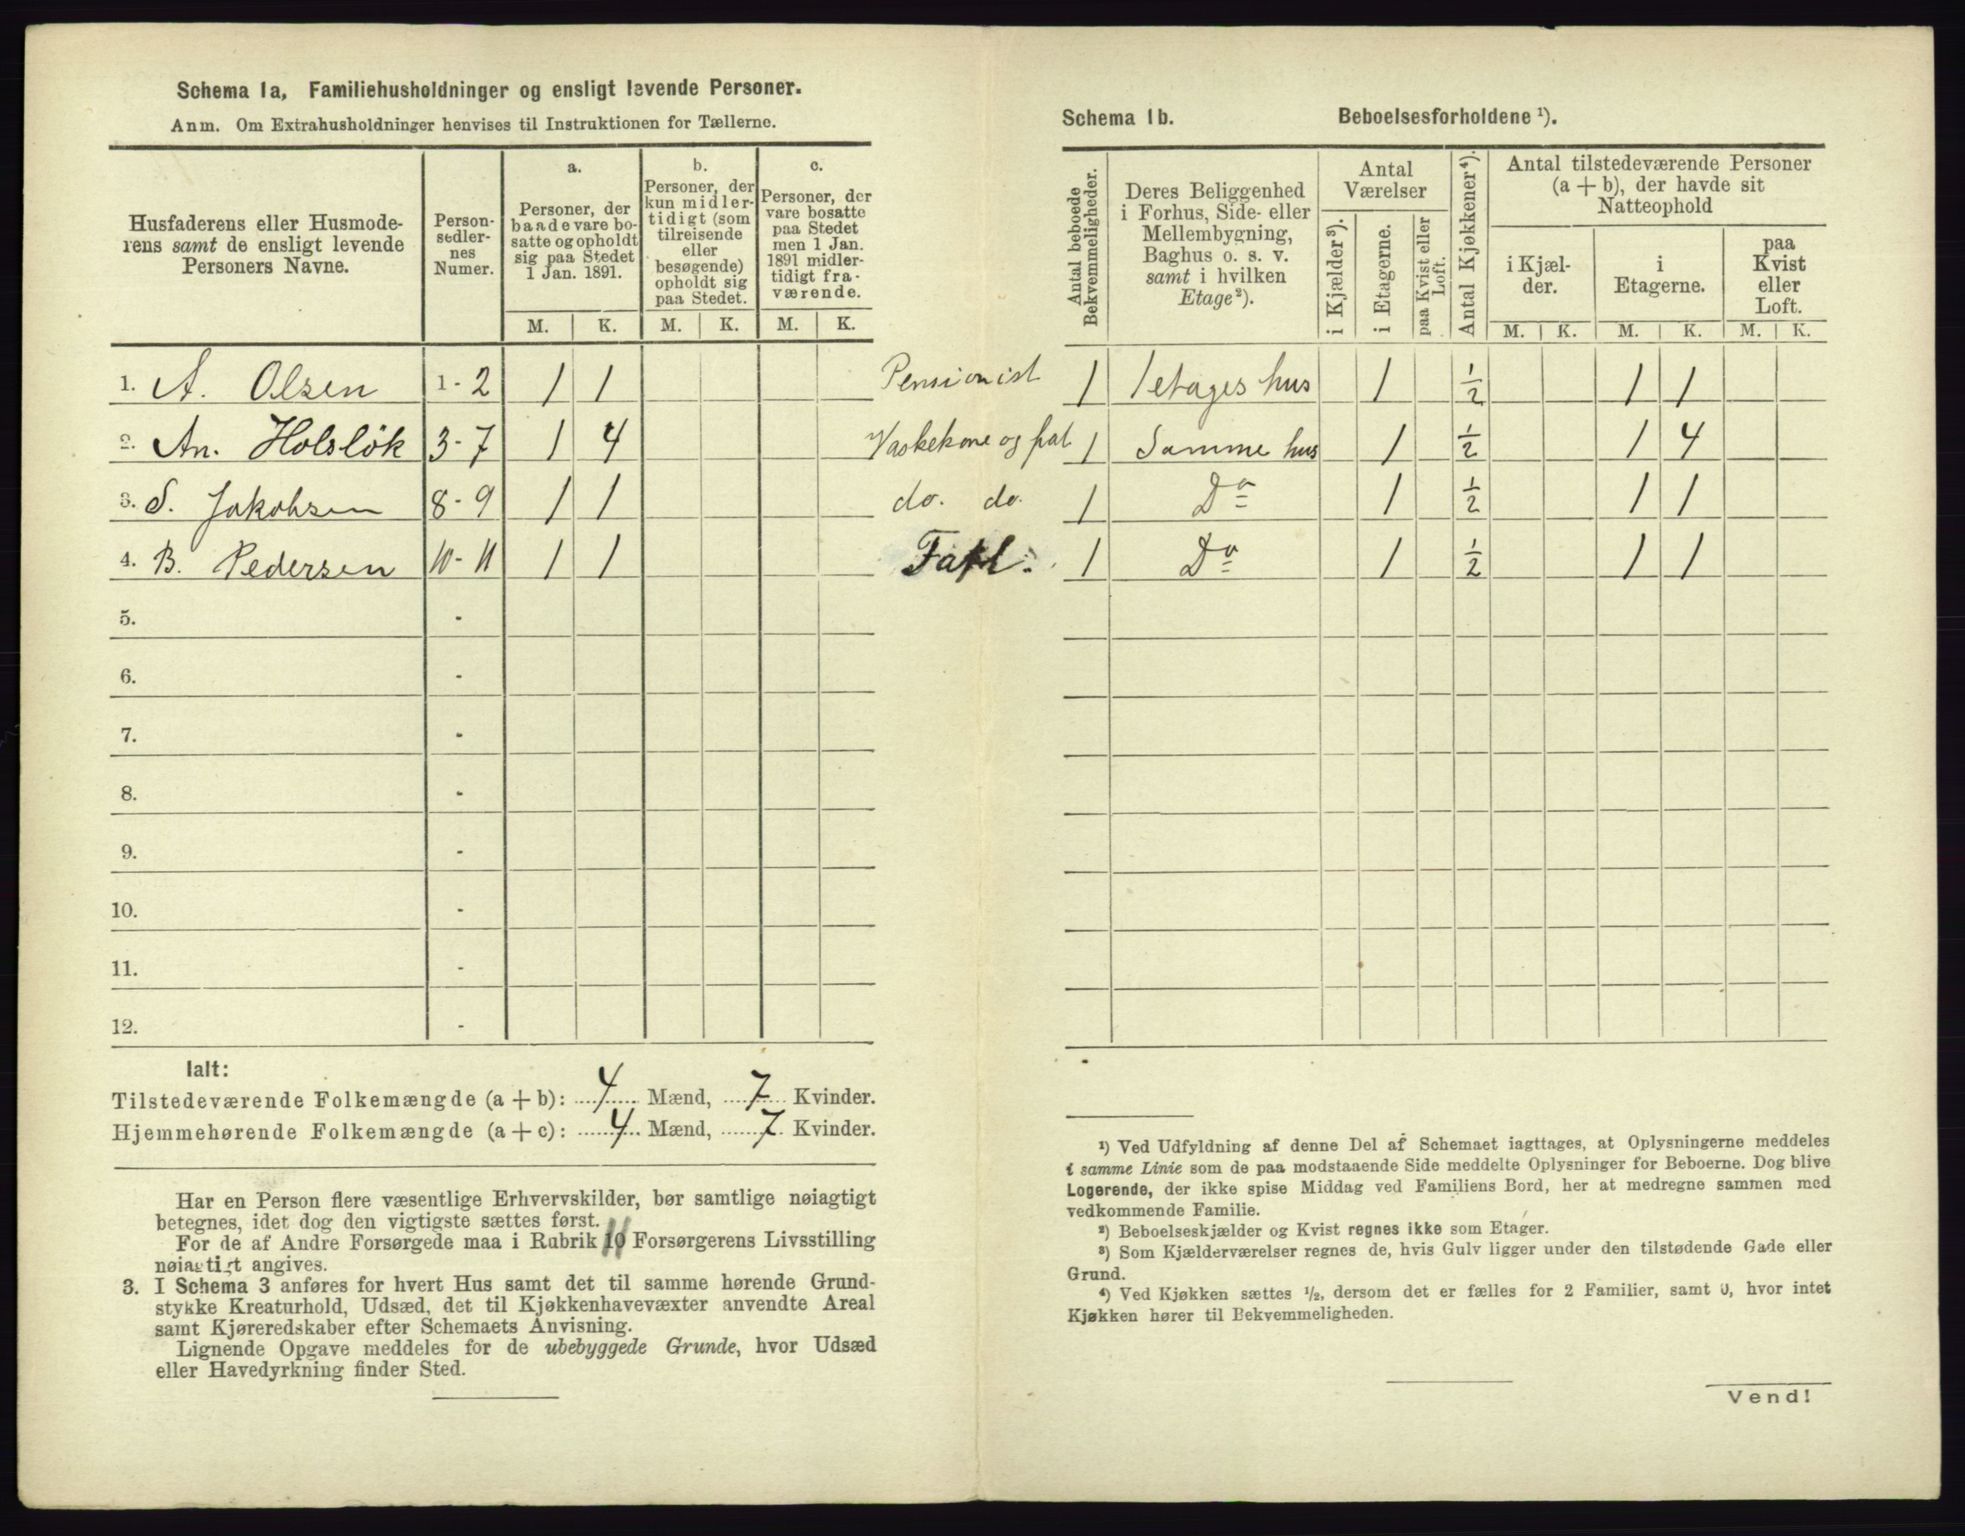 Schema 1a, Familiehusholdninger og ensligt levende Personer.
Anm. Om Extrahusholdninger henvises til Instruktionen for Tællerne.
Husfaderens eller Husmode-
rens samt de ensligt levende
Personers Navne.
Person-
sedler-
nes
Numer.
a.
Personer, der
baade vare bo-
satte og opholdt
sig paa Stedet
1 Jan. 1891.
b.
Personer, der
kun midler-
tidigt (som
tilreisende
eller
besøgende)
opholdt sig
paa Stedet.
c.
Personer, der
vare bosatte
paa Stedet
men 1 Jan.
1891 midler-
tidigt fra-
værende.
M. K. M. K. M. K.
1. A. Olsen 1 - 2 1 1 Pensionist
2. An. Holsløk 3 - 7 1 4 Vaskekone og fat
3. S. Jakobsen 8 - 9 1 1 do. do.
4. B. Pedersen 10 - 11 1 1
5. -
6. -
7. -
8. -
9. -
10. -
11. -
12. -
Ialt:
Tilstedeværende Folkemængde (a + b): 4 Mænd, 7 Kvinder.
Hjemmehørende Folkemængde (a + c): 4 Mænd, 7 Kvinder.
Har en Person flere væsentlige Erhvervskilder, bør samtlige nøiagtigt
betegnes, idet dog den vigtigste sættes først.
For de af Andre Forsørgede maa i Rubrik 11 Forsørgerens Livsstilling
nøiagtigt angives.
3. I Schema 3 anføres for hvert Hus samt det til samme hørende Grund-
stykke Kreaturhold, Udsæd, det til Kjøkkenhavevæxter anvendte Areal
samt Kjøreredskaber efter Schemaets Anvisning.
Lignende Opgave meddeles for de ubebyggede Grunde, hvor Udsæd
eller Havedyrkning finder Sted.
Schema 1b. Beboelsesforholdene ¹).
Antal beboede
Bekvemmeligheder.
Deres Beliggenhed
i Forhus, Side- eller
Mellembygning,
Baghus o. s. v.
samt i hvilken
Etage²).
Antal
Værelser
i Kjælder³).
i Etagerne.
paa Kvist eller
Loft.
Antal Kjøkkener⁴).
Antal tilstedeværende Personer
(a + b), der havde sit
Natteophold
i Kjæl-
der.
i
Etagerne.
paa
Kvist
eller
Loft.
M. K. M. K. M. K.
1 1 etages hus 1 ½ 1 1
1 Samme hus 1 ½ 1 4
1 Do 1 ½ 1 1
1 Do 1 ½ 1 1
¹) Ved Udfyldning af denne Del af Schemaet iagttages, at Oplysningerne meddeles
i samme Linie som de paa modstaaende Side meddelte Oplysninger for Beboerne. Dog blive
Logerende, der ikke spise Middag ved Familiens Bord, her at medregne sammen med
vedkommende Familie.
²) Beboelseskjælder og Kvist regnes ikke som Etager.
³) Som Kjælderværelser regnes de, hvis Gulv ligger under den tilstødende Gade eller
Grund.
⁴) Ved Kjøkken sættes ½, dersom det er fælles for 2 Familier, samt 0, hvor intet
Kjøkken hører til Bekvemmeligheden.
Vend!